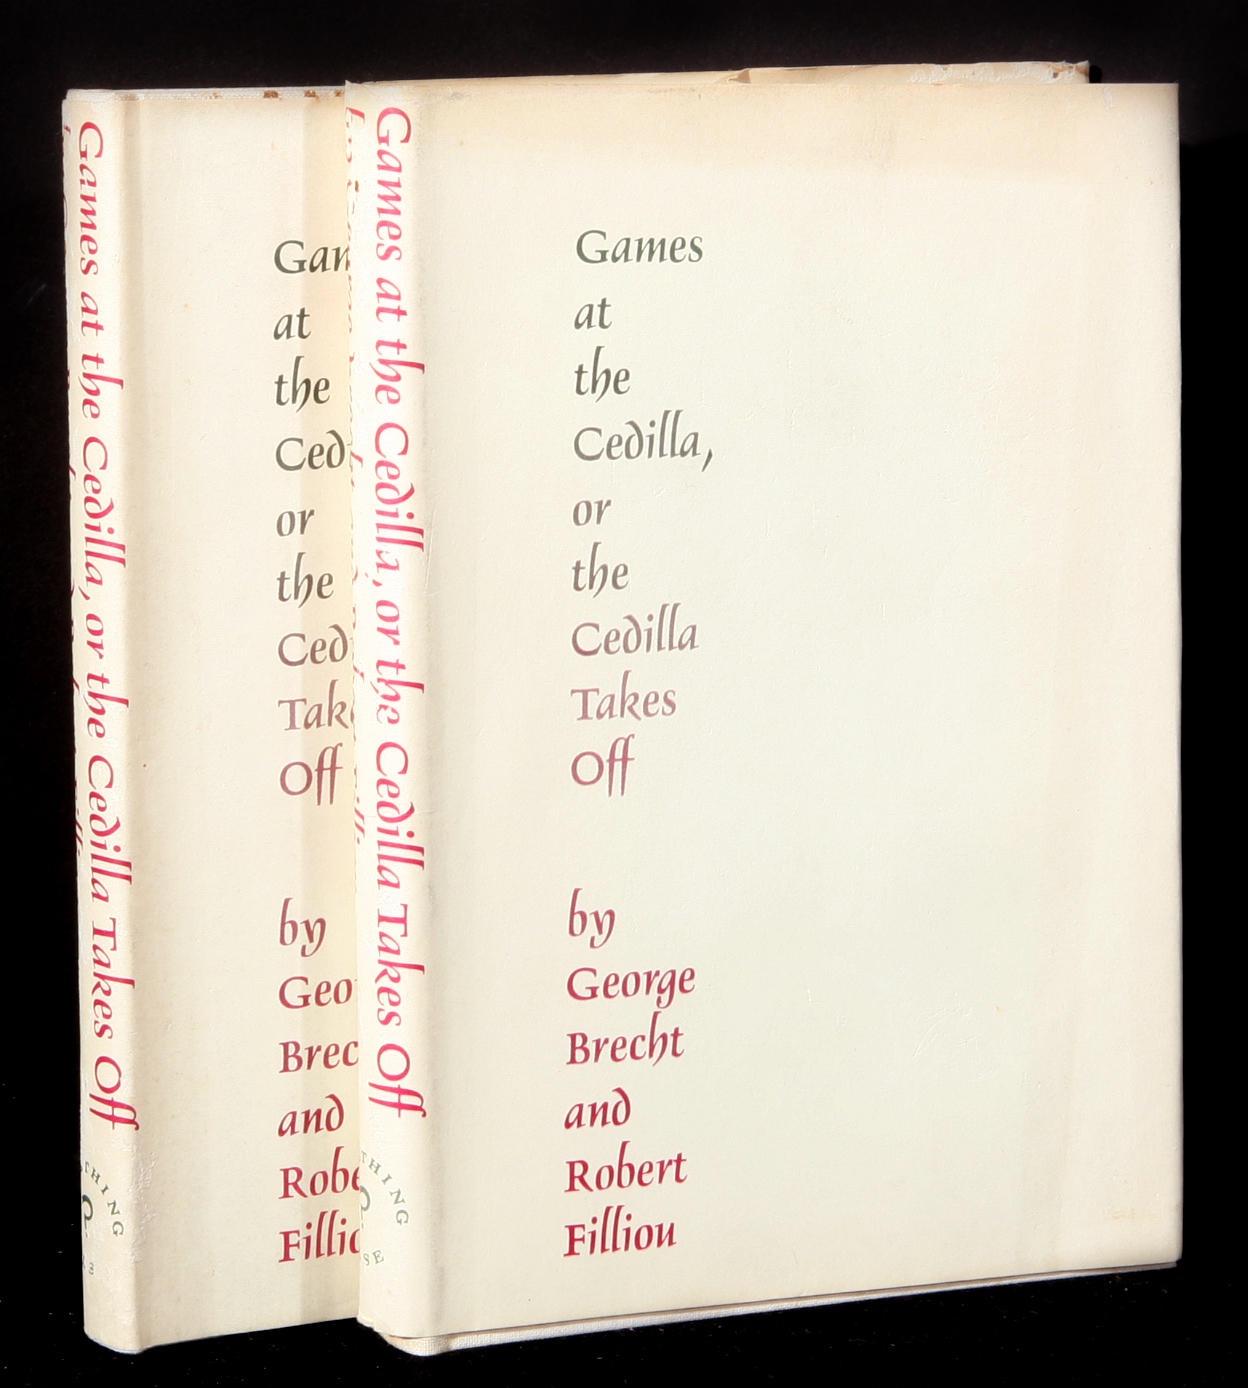 Games at the Cedilla, or the Cedilla Takes Off
THING
Gam
at
the
Ced
or
the
Ced
Take
Off
by
Geo
Brec
and
Robe
Fillio
Games at the Cedilla, or the Cedilla Takes Off
THING
SE
Games
at
the
Cedilla,
or
the
Cedilla
Takes
Off
by
George
Brecht
and
Robert
Filliou